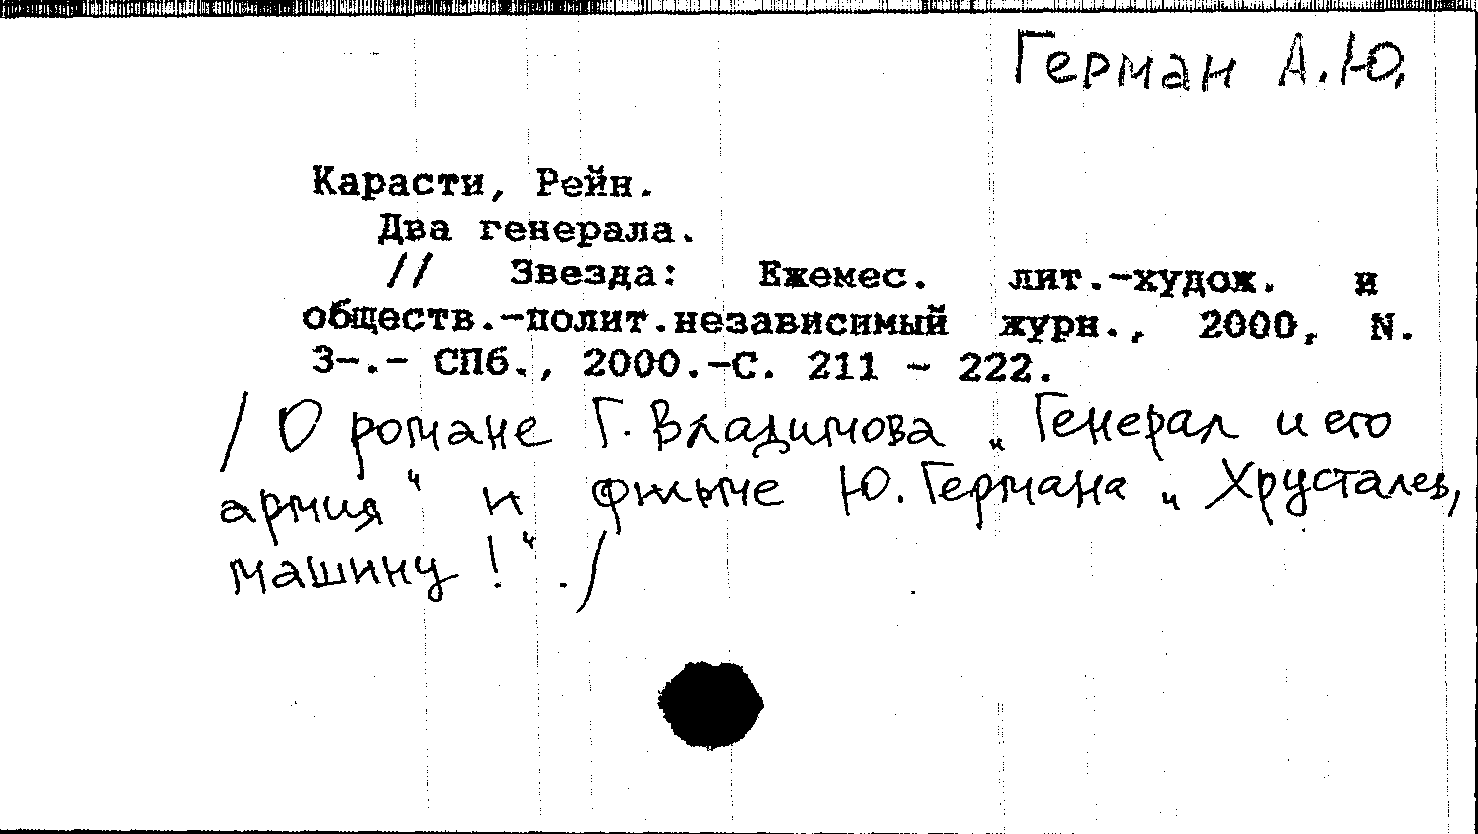 Герман А.Ю.
Карасти, Рейн.
Два генерала.
// Звезда: Ежемес. лит.-худож. и
обществ.-полит.независимый журн., 2000, N.
3-.- СПб., 2000.-С. 211 - 222.
/ О романе Г. Владимова „Генерал и его
армия“ и фильме Ю. Германа „Хрусталев,
машину!“./